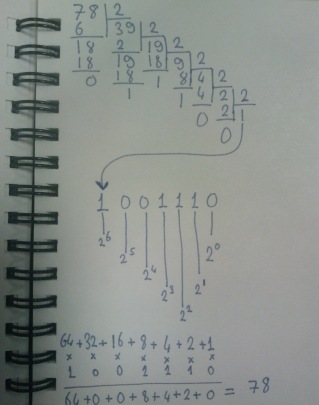 78 2
6 39 2
18 2 19 2
18 19 18 9 2
0 18 1 8 4 2
1 1 4 2 2
0 2 1
0
1 0 0 1 1 1 0
2^6 2^5 2^4 2^3 2^2 2^1 2^0
64+32+16+8+4+2+1
x x x x x x x
1 0 0 1 1 1 0
64+0+0+8+4+2+0 = 78